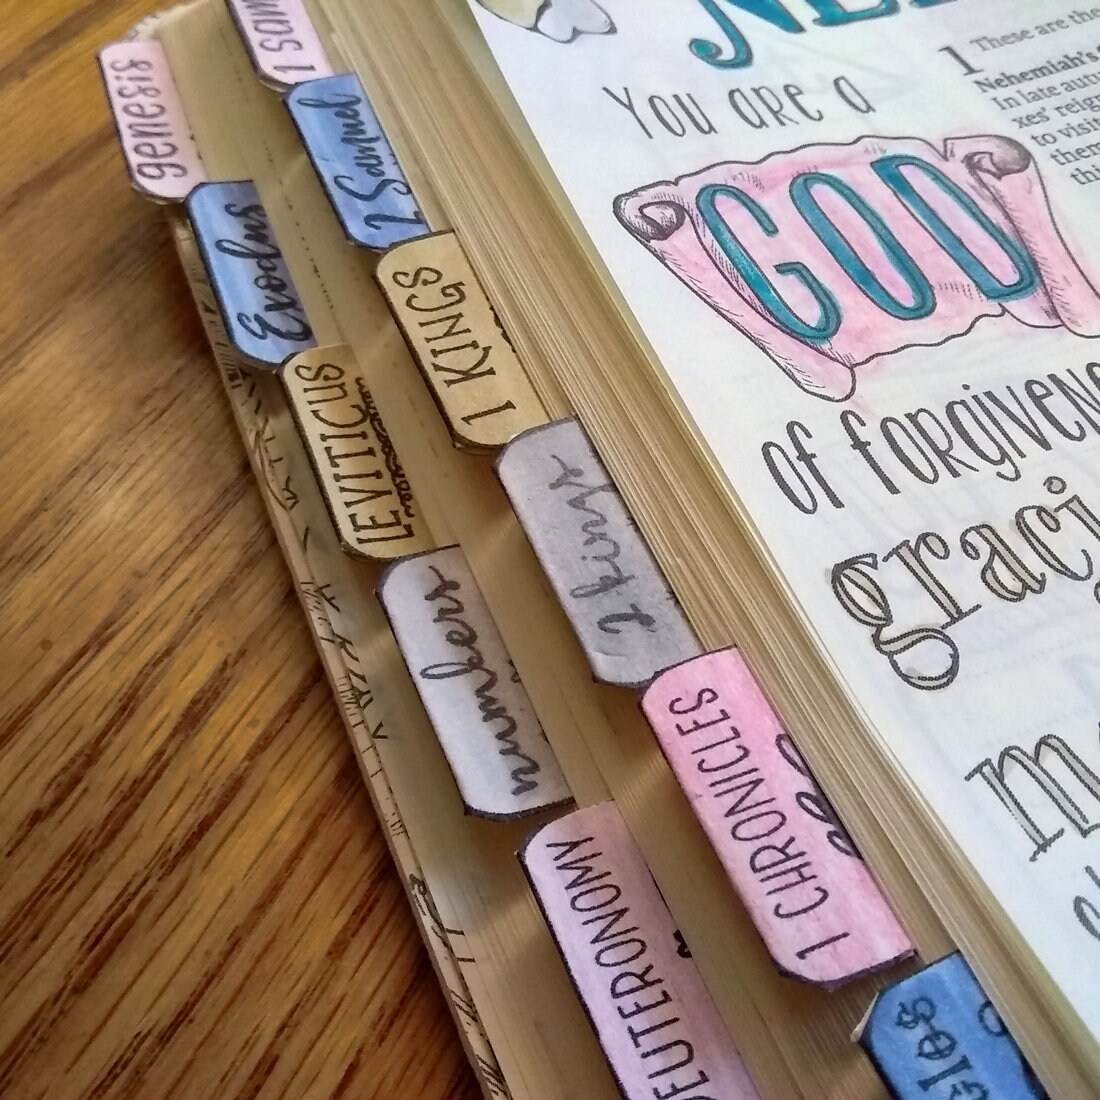 genesis
Exodus
LEVITICUS
numbers
DEUTERONOMY
1 sam
2 Samuel
1 KINGS
2 kings
1 CHRONICLES
cles
NE
You are a
GOD
of forgivene
graci
1 These are the
Nehemiah's
In late autu
xes' reig
to visit
them
thi